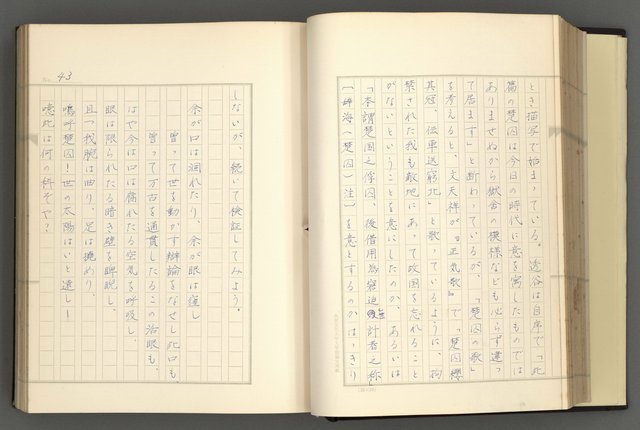 とき描写で始まっている。透谷は自序で「此
篇の楚囚は今日の時代に意を寓したものでは
ありませぬから獄舎の模様なども必らず違っ
て居ます」と断わっているが、「楚囚の歌」
を考えると、文天祥が『正気歌』で「楚囚纓
其冠、伝車送窮北」と歌っているように、拘
繋された我も敵地にあって故国を忘れること
がないということを意にしたのか、あるいは
「本謂楚国之俘囚、後借用為窘迫無計者之称」
(辞海〈楚囚〉注)を意とするのかはっきり
43
しないが、続いて検証してみよう。
余が口は涸れたり、余が眼は凹し
曽って世を動かす辯論をなせし此口も、
曽って万古を通貫したるこの活眼も、
はや今は口は腐れたる空気を呼吸し、
眼は限られたる暗き壁を睥睨し、
且つ我腕は曲り、足は撓めり、
嗚呼楚囚!世の太陽はいと遠し!
噫此は何の科ぞや?